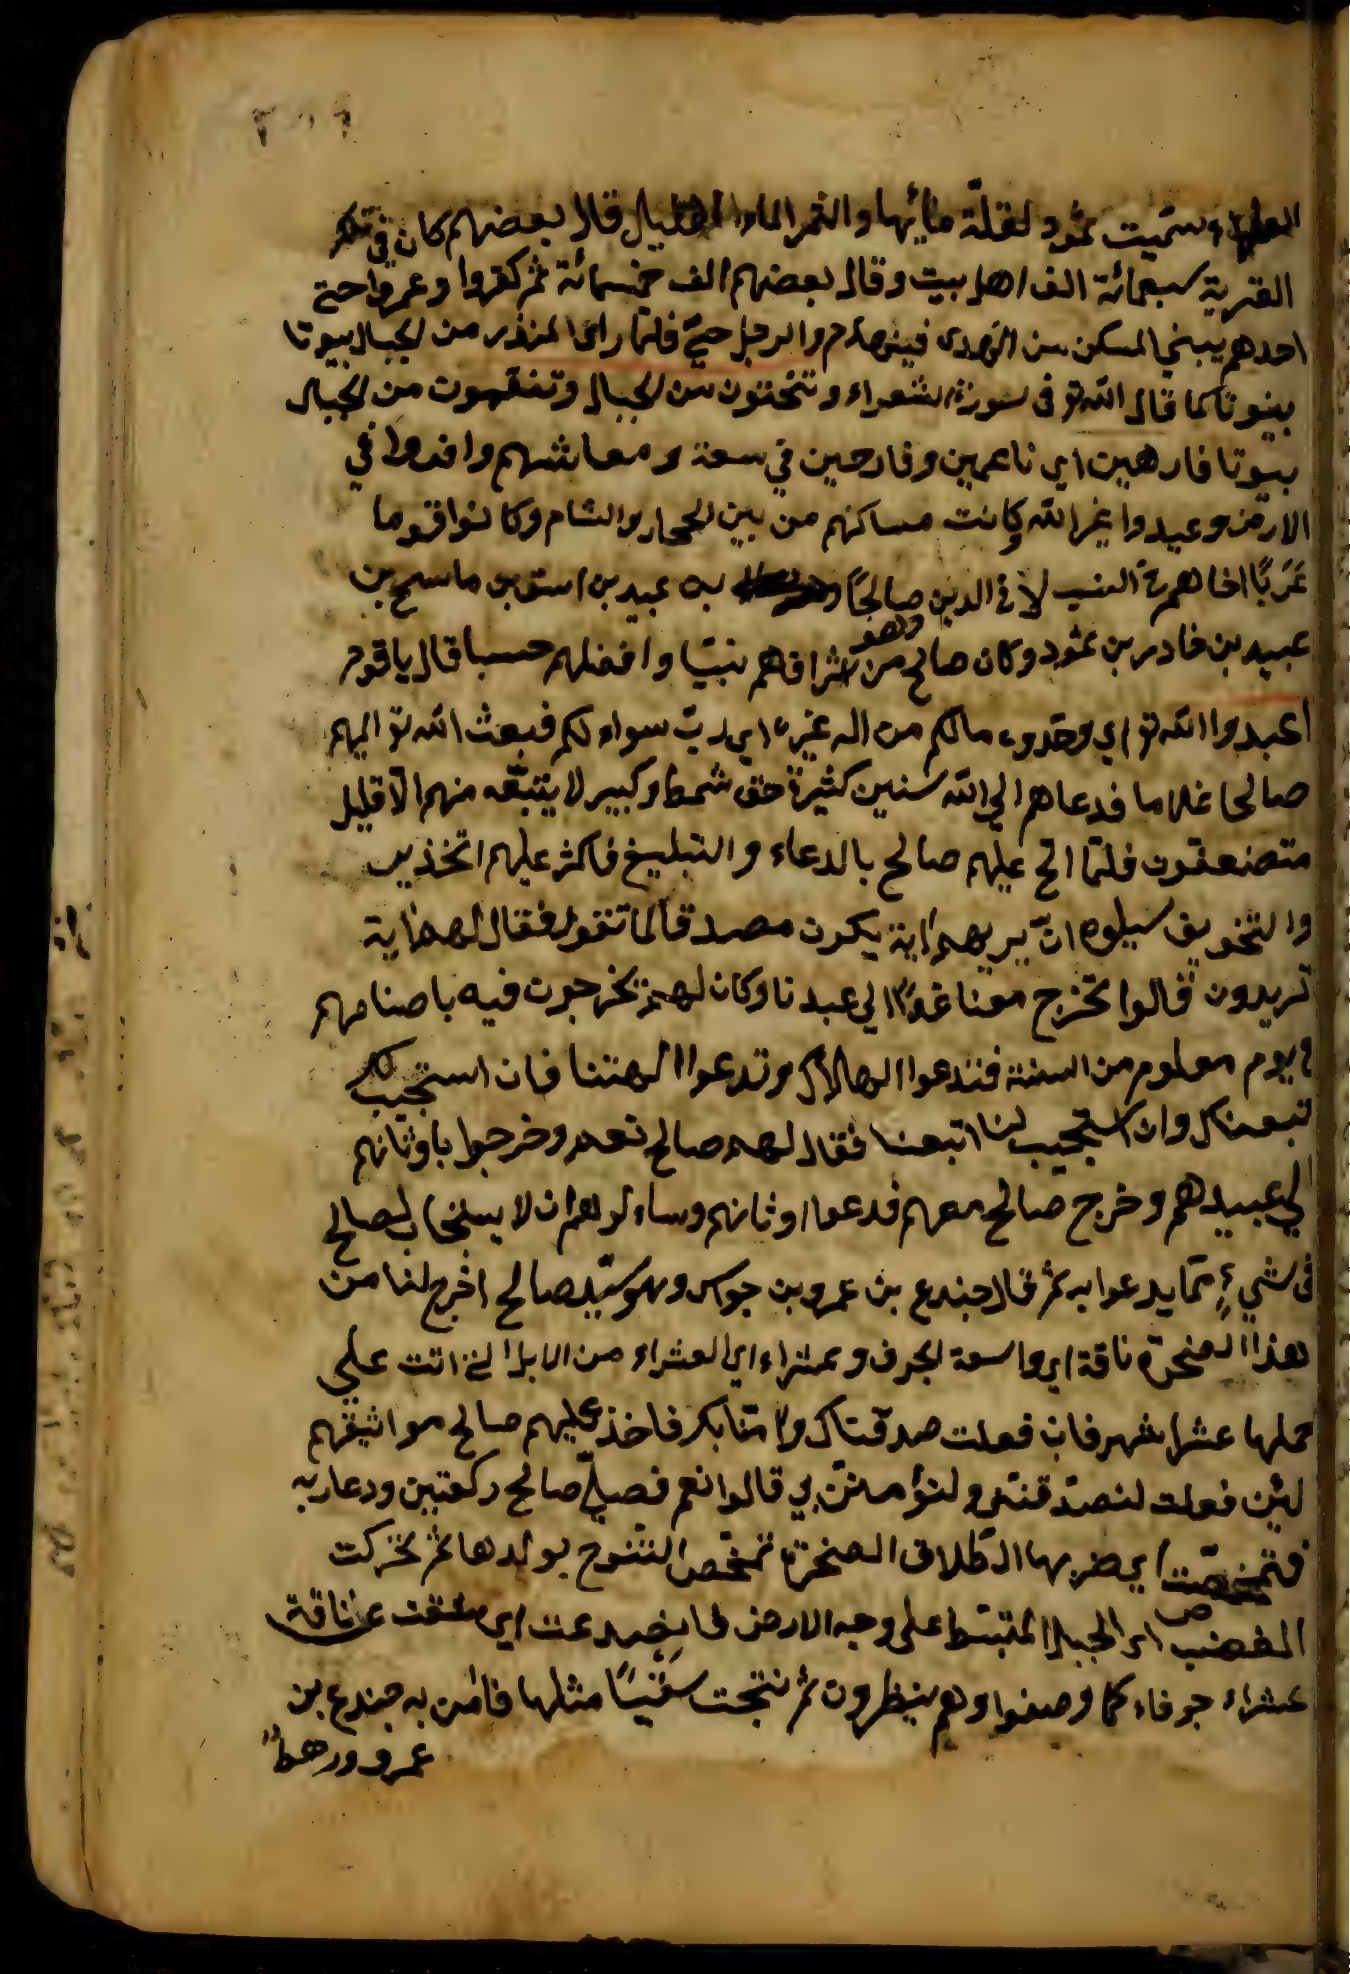 العلماء سمّيت ثمود لقلّة مائها والثمر الماء القليل قال بعضهم كان في تلك
القرية سبعمائة الف اهل بيت وقال بعضهم الف خمسمائة ثم كفروا وعمروا حتى
احدهم يبني المسكن من فينهدم والرجل حيّ فلمّا راى من الجبال بيوتا
بيوتا كما قال الله تع في سورة الشعراء وتنحتون من الجبال من الجبال
بيوتا فارهين اي ناعمين وفارحين في سعة معاشهم وافسدوا في
الارض وعبدوا غير الله وكانت مساكنهم من بين الحجاز والشام وكانوا قوما
عَرَبًا اخاهم في النسب لا في الدين صالحًا وهو بن عبيد بن اسف بن ماسح بن
عبيد بن خادر بن ثمود وكان صالح من اشرافهم نبيّا وافضلهم حسبا قال يا قوم
اعبدوا الله تع اي وحّدوه مالكم من اله غيره اي ربّ سواه لكم فبعث الله تع اليهم
صالحا غلاما فدعاهم الي الله سنين كثيرة حتى شمط وكبير لا يتبعه منهم الّا قليل
فلمّا الحّ عليهم صالح بالدعاء والتبليغ فاكثر عليهم
والتخويف ان يريهم اية يكون مصدقا لما تقول فقال لهم اية
تريدون قالوا تخرج معنا غدًا الي عيدنا وكان لهم يخرجون فيه باصنامهم
في يوم معلوم من السنة فتدعوا الهك وندعوا الهتنا فان استجيب لك
تبعناك وان استجيب لنا اتبعنا فقال لهم صالح نعم وخرجوا باوثانهم
الي عبيدهم وخرج صالح معهم فدعوا اوثانهم وساءلوهم ان لا يستجاب لصالح
في شيءٍ ممّا يدعوا به ثم قال جندع بن عمرو بن جوس وهو سيّد صالح اخرج لنا من
هذا الصخرة ناقة اي واسعة الجوف وعشراء اي العشراء من الابل التي اتت علي
حملها عشرا شهر فان فعلت صدقناك وامنّا بك فاخذ عليهم صالح مواثيقهم
لئن فعلت لتصدّقنّني ولتؤمننّ بي قالوا نعم فصلّي صالح ركعتين ودعا ربه
فتمخّضت اي ضربها الطلاق الصخرة تمخّص النتوج بولدها ثم تحركت
الهضب اي الجبل المنبسّط على وجه الارض فانصدعت اي شقت عن ناقة
عشراء جوفاء كما وصفوا وهم ينظرون ثم نتجت سَقْبًا مثلها فامن به جندع بن
عمرو ورهطٌ